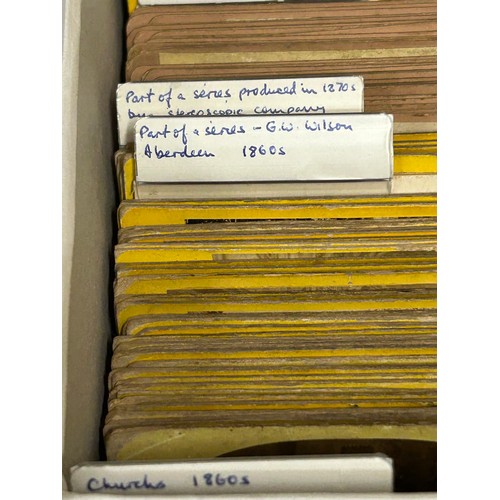 Part of a series produced in 1870s
by a stereoscopic company
Part of a series - G.W. Wilson
Aberdeen 1860s
Churchs 1860s